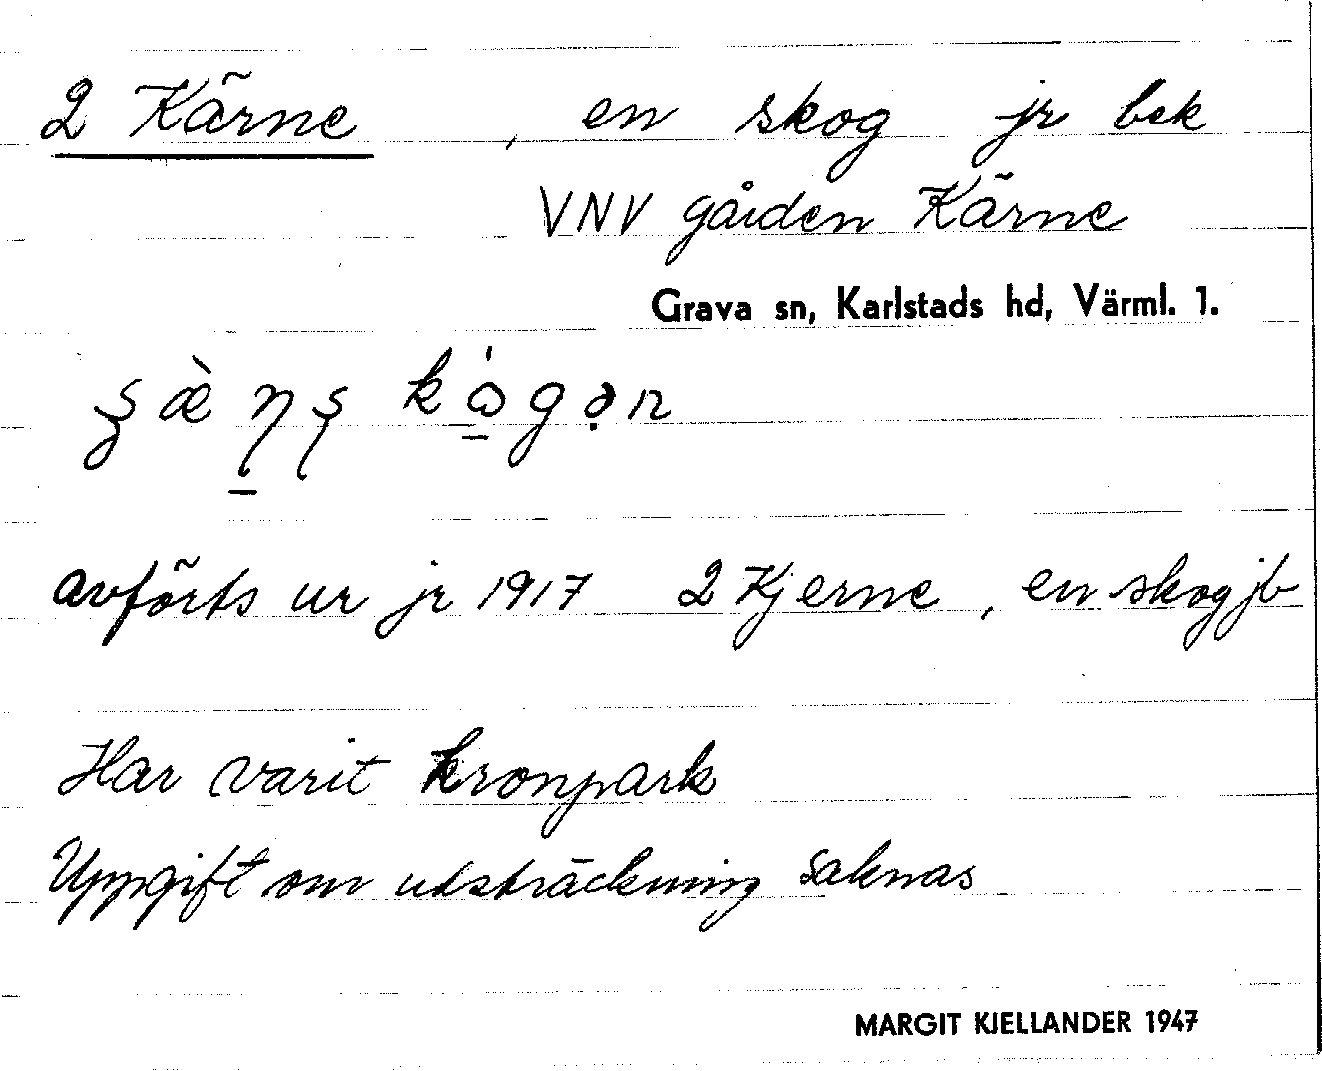 2 Kärne , en skog jr bek
VNV gården Kärne
Grava sn, Karlstads hd, Värml. 1.
avförts ur jr 1917 2 Kjerne , en skog jb
Har varit kronpark
Uppgift om utsträckning saknas
MARGIT KJELLANDER 1947